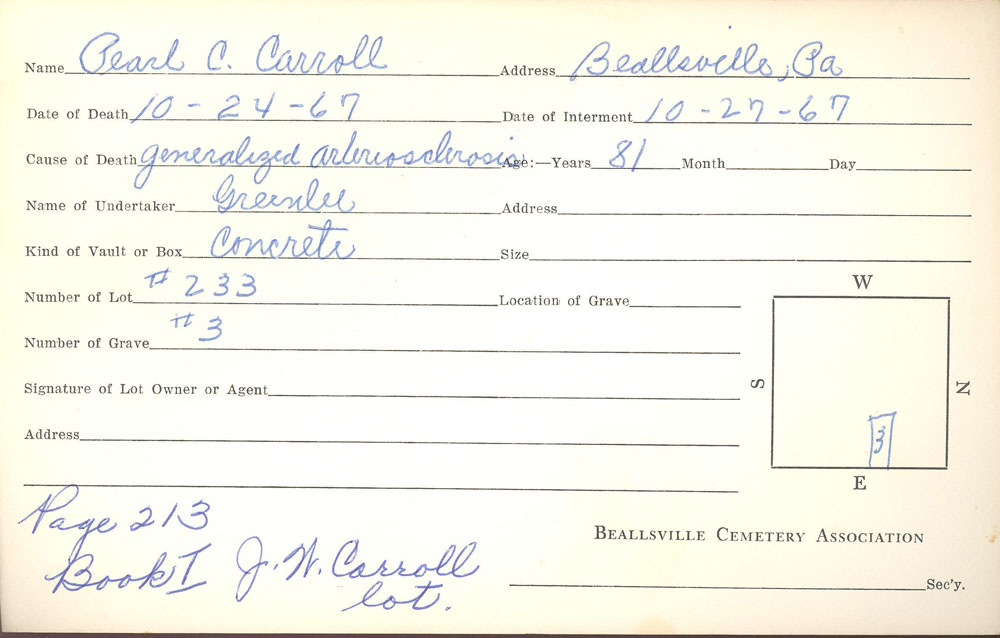 Name Pearl C. Carroll Address Beallsville, Pa
Date of Death 10-24-67 Date of Interment 10-27-67
Cause of Death generalized arteriosclerosis Age:—Years 81 Month Day
Name of Undertaker Greenlee Address
Kind of Vault or Box Concrete Size
Number of Lot #233 Location of Grave
Number of Grave #3
Signature of Lot Owner or Agent
Address
W
S
N
3
E
Page 213
Book I J. W. Carroll
lot.
BEALLSVILLE CEMETERY ASSOCIATION
Sec'y.